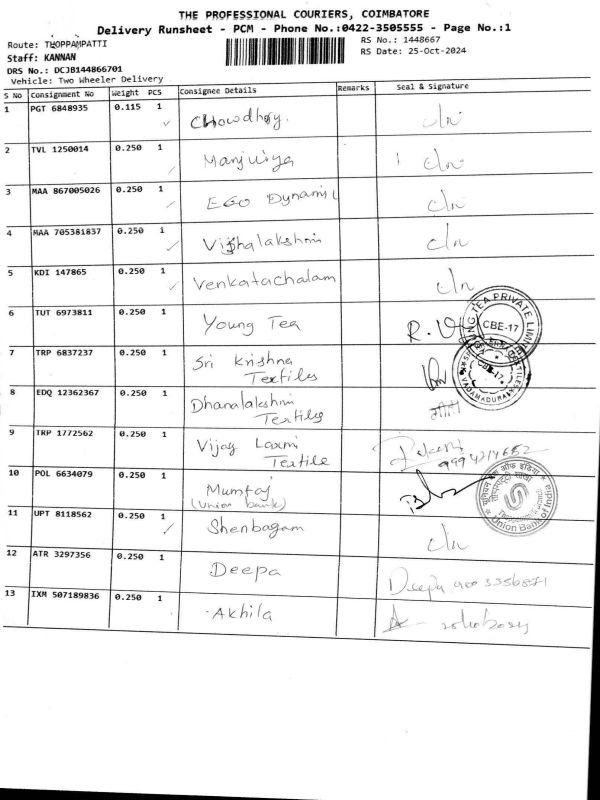 THE PROFESSIONAL COURIERS, COIMBATORE
Delivery Runsheet - PCM - Phone No.:0422-3505555 - Page No.:1
Route: THOPPAMPATTI
RS No.: 1448667
Staff: KANNAN
RS Date: 25-Oct-2024
DRS No.: DCJB144866701
Vehicle: Two Wheeler Delivery
S No Consignment No Weight PCS Consignee Details Remarks Seal & Signature
1 PGT 6848935 0.115 1 Chowdhry.
2 TVL 1250014 0.250 1 Manjuriya
3 MAA 867005026 0.250 1 EGO Dynamic
4 MAA 705381837 0.250 1 Vishalakshmi
5 KDI 147865 0.250 1 Venkatachalam
6 TUT 6973811 0.250 1 Young Tea
CBE-17
7 TRP 6837237 0.250 1 Sri Krishna
Textiles
CBE-17
8 EDQ 12362367 0.250 1 Dhanalakshmi
Textiles
9 TRP 1772562 0.250 1 Vijay Laxmi
Textile
10 POL 6634079 0.250 1 Mumtaj
(Union bank)
Union Bank of India
11 UPT 8118562 0.250 1 Shenbagam
12 ATR 3297356 0.250 1 Deepa Deepa
13 IXM 507189836 0.250 1 Akhila